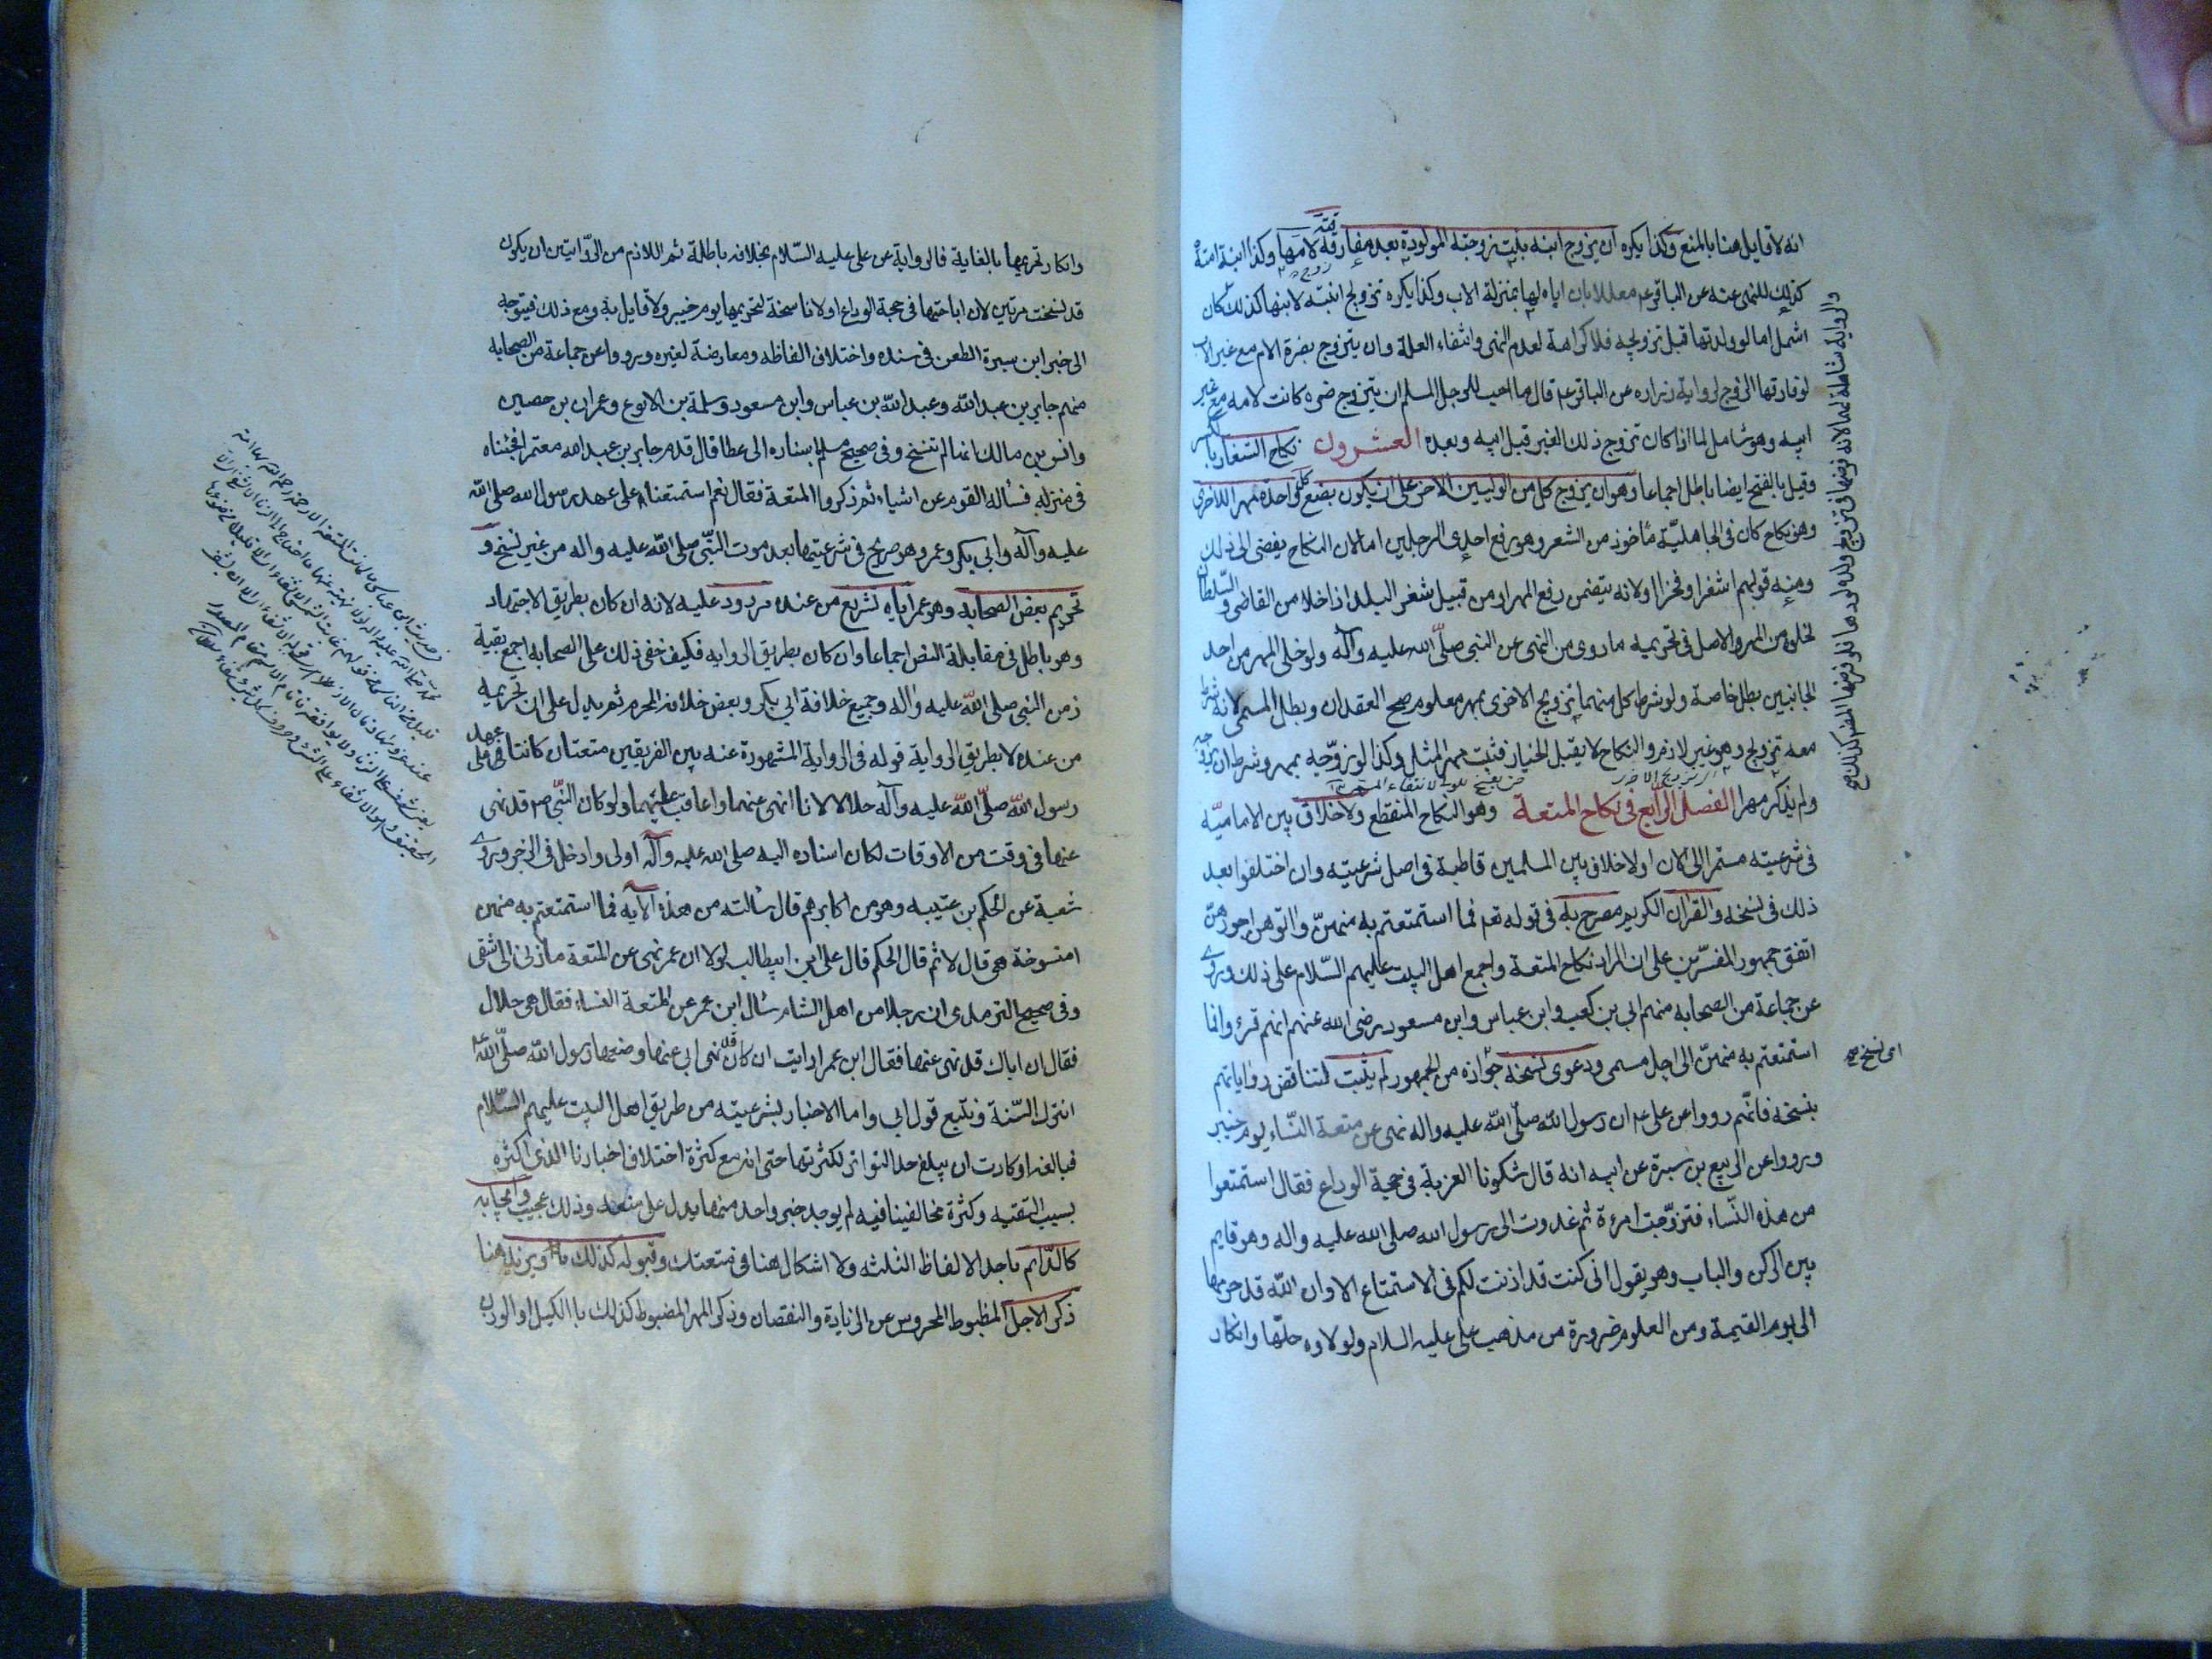 انه لا قايل هنا بالمنع وكذا يكره ان يزوج ابنه ببنت زوجته المولودة بعد مفارقته لامها وكذا ابنة امته
كذلك للنهى عنه عن الباقر ع معللا بان اباه لها بمنزلة الاب وكذا يكره تزويج ابنته لابنها كذلك
اشمل اما لو ولدتها قبل تزويجه فلا كراهة لعدم النهى وانتفاء العلة وان يتزوج بضرة الام مع غير الاب
لو فارقها الزوج لرواية زراره عن الباقر ع قال ما احب للرجل المسلم ان يتزوج ضره كانت لامه مع غير
ابيه وهو شامل لما اذا كان تزوج ذلك الغير قبل ابيه وبعده العشرون نكاح الشغار بالكسر
وقيل بالفتح ايضا باطل اجماعا وهو ان يزوج كل من الوليين الاخر على ان يكون بضع كل واحدة مهر للاخرى
وهو نكاح كان فى الجاهليّة ماخوذ من الشغر وهو رفع احدى الرجلين اما لان النكاح يفضى الى ذلك
ومنه قولهم اشغرا وفخرا او لانه يتضمن رفع المهر او من قبيل شغر البلد اذا خلا من القاضى والسّلطان
لخلوه من المهر والاصل فى تحريمه ما روى من النهى عن النبى صلّى الله عليه وآله ولو خلى المهر من احد
الجانبين بطل خاصة ولو شرط كل منهما تزويج الاخرى بمهر معلوم صح العقدان وبطل المسمى لانه شرط
معه تزويج وهو غير لازم والنكاح لا يقبل الخيار فثبت مهر المثل وكذا لو زوّجه بمهر وشرط ان يزوجه
ولم يذكر مهرا الفصل الرابع فى نكاح المتعة وهو النكاح المنقطع ولا خلاف بين الاماميّه
فى شرعيته مستمرا الى الان او لا خلاف بين المسلمين قاطبة فى اصل شرعيته وان اختلفوا بعد
ذلك فى نسخه والقران الكريم مصرح به فى قوله تعه فما استمتعتم به منهنّ فاتوهن اجورهنّ
اتفق جمهور المفسّرين على ان المراد نكاح المتعة واجمع اهل البيت عليهم السّلام على ذلك وروى
عن جماعة من الصحابه منهم ابى بن كعب وابن عباس وابن مسعود رضى الله عنهم انهم قرؤا فما
استمتعتم به منهنّ الى اجل مسمى ودعوى نسخه جوازه من الجمهور لم يثبت لتناقض رواياتهم
بنسخه فانّهم رووا عن على ع ان رسول الله صلّى الله عليه واله نهى عن متعة النّساء يوم خيبر
ورووا عن الربيع بن سبرة عن ابيه انه قال شكونا العزبة فى حجة الوداع فقال استمتعوا
من هذه النّساء فتزوّجت امرءة ثم غدوت الى رسول الله صلى الله عليه واله وهو قايم
بين الركن والباب وهو يقول انى كنت قد اذنت لكم فى الاستمتاع الا وان الله قد حرمها
الى يوم القيمة ومن المعلوم ضرورة من مذهب على عليه السلام واولاده حلّها وانكار
وانكار تحريمها بالغاية فالرواية عن على عليه السّلام بخلافه باطلة ثم اللازم من الرّوايتين ان يكون
قد نسخت مرتين لان اباحتها فى حجة الوداع اولا ناسخة لتحريمها يوم خيبر ولا قايل به ومع ذلك فيتوجه
الى خبر ابن سبرة الطعن فى سنده واختلاف الفاظه ومعارضة لغيره ورووا عن جماعة من الصحابه
منهم جابر بن عبد الله وعبد الله بن عباس وابن مسعود وسلمة بن الاكوع وعمران بن حصين
وانس بن مالك انها لم تنسخ وفى صحيح مسلم باسناده الى عطا قال قدم جابر بن عبد الله معتمرا فجئناه
فى منزله فساله القوم عن اشياء ثم ذكروا المتعة فقال نعم استمتعنا على عهد رسول الله صلى الله
عليه وآله وابى بكر وعمر وهو صريح فى شرعيتها بعد موت النّبى صلى الله عليه واله من غير نسخ و
تحريم بعض الصحابه وهو عمر اياه تشريع من عنده مردود عليه لانه ان كان بطريق الاجتهاد
وهو باطل فى مقابلة النص اجماعا وان كان بطريق الروايه فكيف خفى ذلك على الصحابه اجمع بقية
زمن النبى صلى الله عليه واله وجميع خلافة ابى بكر وبعض خلافه المحرم ثم يدل على ان تحريمه
من عنده لا بطريق الرواية قوله فى الرواية المشهورة عنه بين الفريقين متعتان كانتا فى عهد
رسول الله صلّى الله عليه وآله حلالا انا انهى عنهما واعاقب عليهما ولو كان النّبى ص قد نهى
عنها فى وقت من الاوقات لكان اسناده اليه صلى الله عليه وآله اولى وادخل فى الزجر وروى
شعبة عن الحكم بن عتيبه وهو من اكابرهم قال سالته من هذه الآيه فما استمتعتم به منهن
امنسوخة هى قال لا ثم قال الحكم قال على ابن ابيطالب لولا ان عمر نهى عن المتعة ما زنى الا شقى
وفى صحيح الترمذى ان رجلا من اهل الشام سال ابن عمر عن المتعة النساء فقال هى حلال
فقال ان اباك قد نهى عنها فقال ابن عمر ارايت ان كان قد نهى ابى عنها وصنعها رسول الله صلّى الله ع
انترك السّنة ونتبع قول ابى واما الاخبار بشرعيته من طريق اهل البيت عليهم السّلام
فبالغه او كادت ان يبلغ حد التواتر لكثرتها حتى انه مع كثرة اختلاف اخبارنا الذى اكثره
بسبب التقيه وكثرة مخالفينا فيه لم يوجد خبر واحد منها يدل على منعه وذلك عجيب وايجابه
كالدّائم باحد الالفاظ الثلثه ولا اشكال هنا فى متعتك وقبوله كذلك ويزيد هنا
ذكر الاجل المظبوط المحروس عن الزيادة والنقصان وذكر المهر المضبوط كذلك با الكيل او الوزن